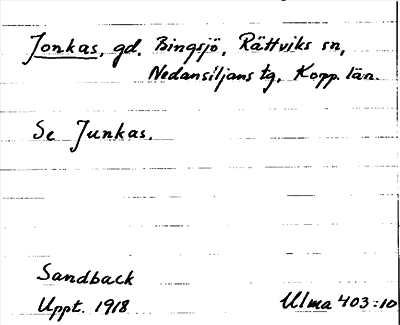 Jonkas, gd. Bingsjö, Rättviks sn,
Nedansiljans tg, Kopp. län.
Se Junkas.
Sandback
Uppt. 1918
Ulma 403:10